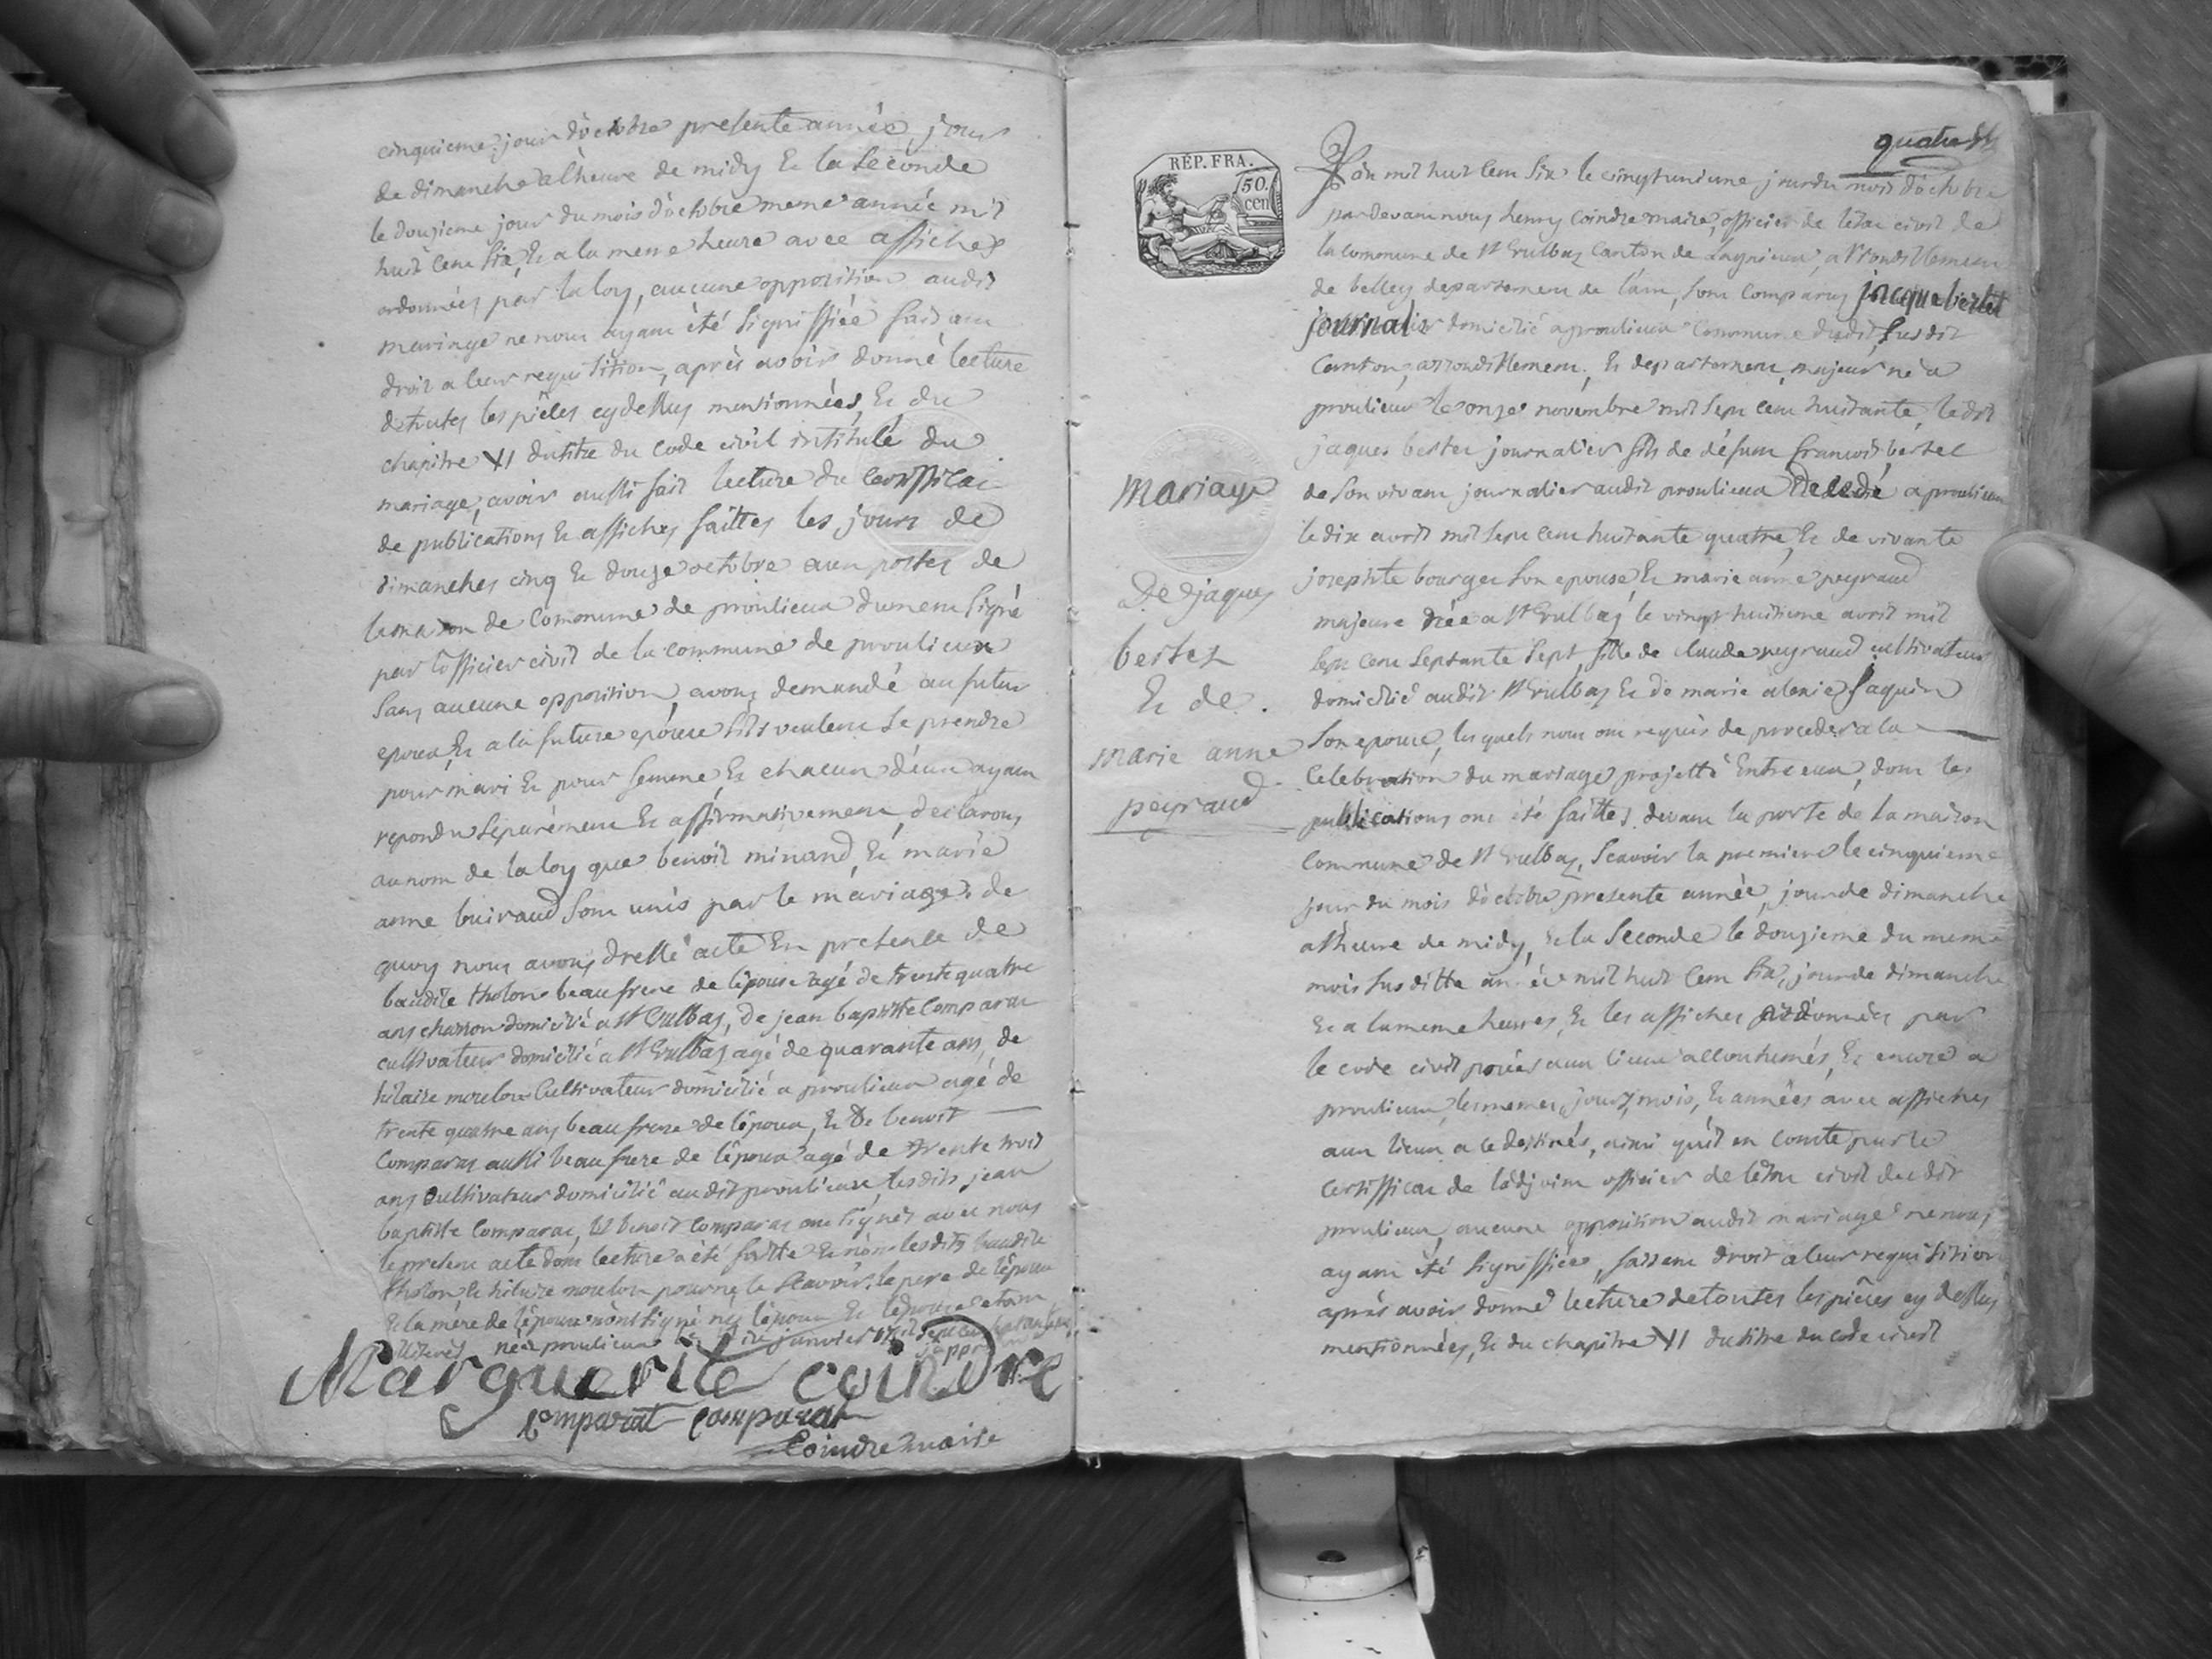 cinquieme jour d'octobre presente année, jour
de dimanche a lheure de midy Et la seconde
le douzieme jour du mois d'octobre meme année mil
huit cent six, Et a la meme heure avec affiches
ordonnées par la loy, aucune opposition audit
mariage ne nous ayant été signiffiée faisant
droit a leur requisition, après avoir donné lecture
de toutes les pièces cydessus mentionnées, Et du
chapitre VI du titre du code civil intitulé du
mariage, avoir aussi fait lecture du certifficat
de publications Et affiches faittes les jours de
dimanches cinq Et douze octobre aux portes de
la maison de Commune de proulieux dument signé
par l'officier civil de la commune de proulieux
sans aucune opposition, avons demandé au futur
epoux Et a la future epouse s'ils veulent se prendre
pour mari Et pour femme Et chacun d'eux ayant
repondu séparément Et affirmativement, declarons
au nom de la loy que benoit minand Et marie
anne buiraud sont unis par le mariage. de
quoy nous avons dressé acte En presence de
baudile tholon beaufrere de l'épouse agé de trente quatre
ans charron domicilié a St Vulbas, de jean baptiste Comparat
cultivateur domicilié a St Vulbas agé de quarante ans, de
hilaire moulon Cultivateur domicilié a proulieux agé de
trente quatre ans beau frere de l'époux, Et de benoit
Comparat aussi beau frere de l'époux agé de trente trois
ans Cultivateur domicilié audit proulieux, lesdits jean
baptiste Comparat, Et benoit Comparat ont signés avec nous
le present acte dont lecture a été faitte Et non lesdits baudile
tholon Et hilaire moulon pour ne le scavoir, le pere de l'époux
Et la mère de l'épouse n'ont signé ny l'époux Et l'épouse etant
né a proulieux le janvier mil sept cent
Marguerite coindre
Comparat Comparat
Coindre maire
quatre
RÉP. FRA.
50 cen
L'an mil huit cent six le vingt unieme jour du mois d'octobre
pardevant nous henry Coindre maire, officier de l'etat civil de
la commune de St Vulbas Canton de Lagnieux, arrondissement
de belley departement de l'ain, sont comparus jacque bertet
journalier domicilié a proulieux Commune dudit, susdit
Canton, arrondissement, Et departement, majeur né a
proulieux le onze novembre mil sept cent huitante, ledit
jaques bertet journalier fils de défunt francois bertet
de son vivant journalier audit proulieux Décédé a proulieux
le dix avril mil sept cent huitante quatre, Et de vivante
josephte bourget son epouse, Et marie anne peyraud
majeure née a St Vulbas le vingt huitieme avril mil
sept cent septante sept, fille de claude peyraud cultivateur
domicilié audit St Vulbas Et de marie alexie jaquin
son epouse, lesquels nous ont requis de proceder a la
Celebration du mariage projetté Entre eux, dont les
publications ont été faittes devant la porte de la maison
Commune de St Vulbas, Scavoir la premiere le cinquieme
jour du mois d'octobre presente année, jour de dimanche
a lheure de midy, Et la Seconde le douzieme du meme
mois susditte année mil huit cent six, jour de dimanche
Et a la meme heure, Et les affiches ordonnées par
le code civil posées aux lieux accoutumés, Et encore a
proulieux les memes jours, mois, Et années avec affiches
aux lieux a ce destinés, ainsi qu'il en Conste par le
Certifficat de l'adjoint officier de l'etat civil du dit
proulieux, aucune opposition audit mariage ne nous
ayant été signiffiée, faisant droit a leur requisition
après avoir donné lecture de toutes les pièces cy dessus
mentionnées, Et du chapitre VI du titre du code civil
mariage
De jaques
bertet
Et de
marie anne
peyraud